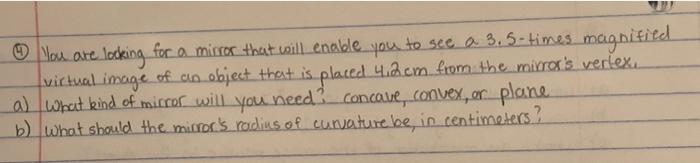 ④ You are looking for a mirror that will enable you to see a 3.5-times magnified
virtual image of an object that is placed 4.2cm from the mirror's vertex.
a) What kind of mirror will you need? concave, convex, or plane
b) What should the mirror's radius of curvature be, in centimeters?